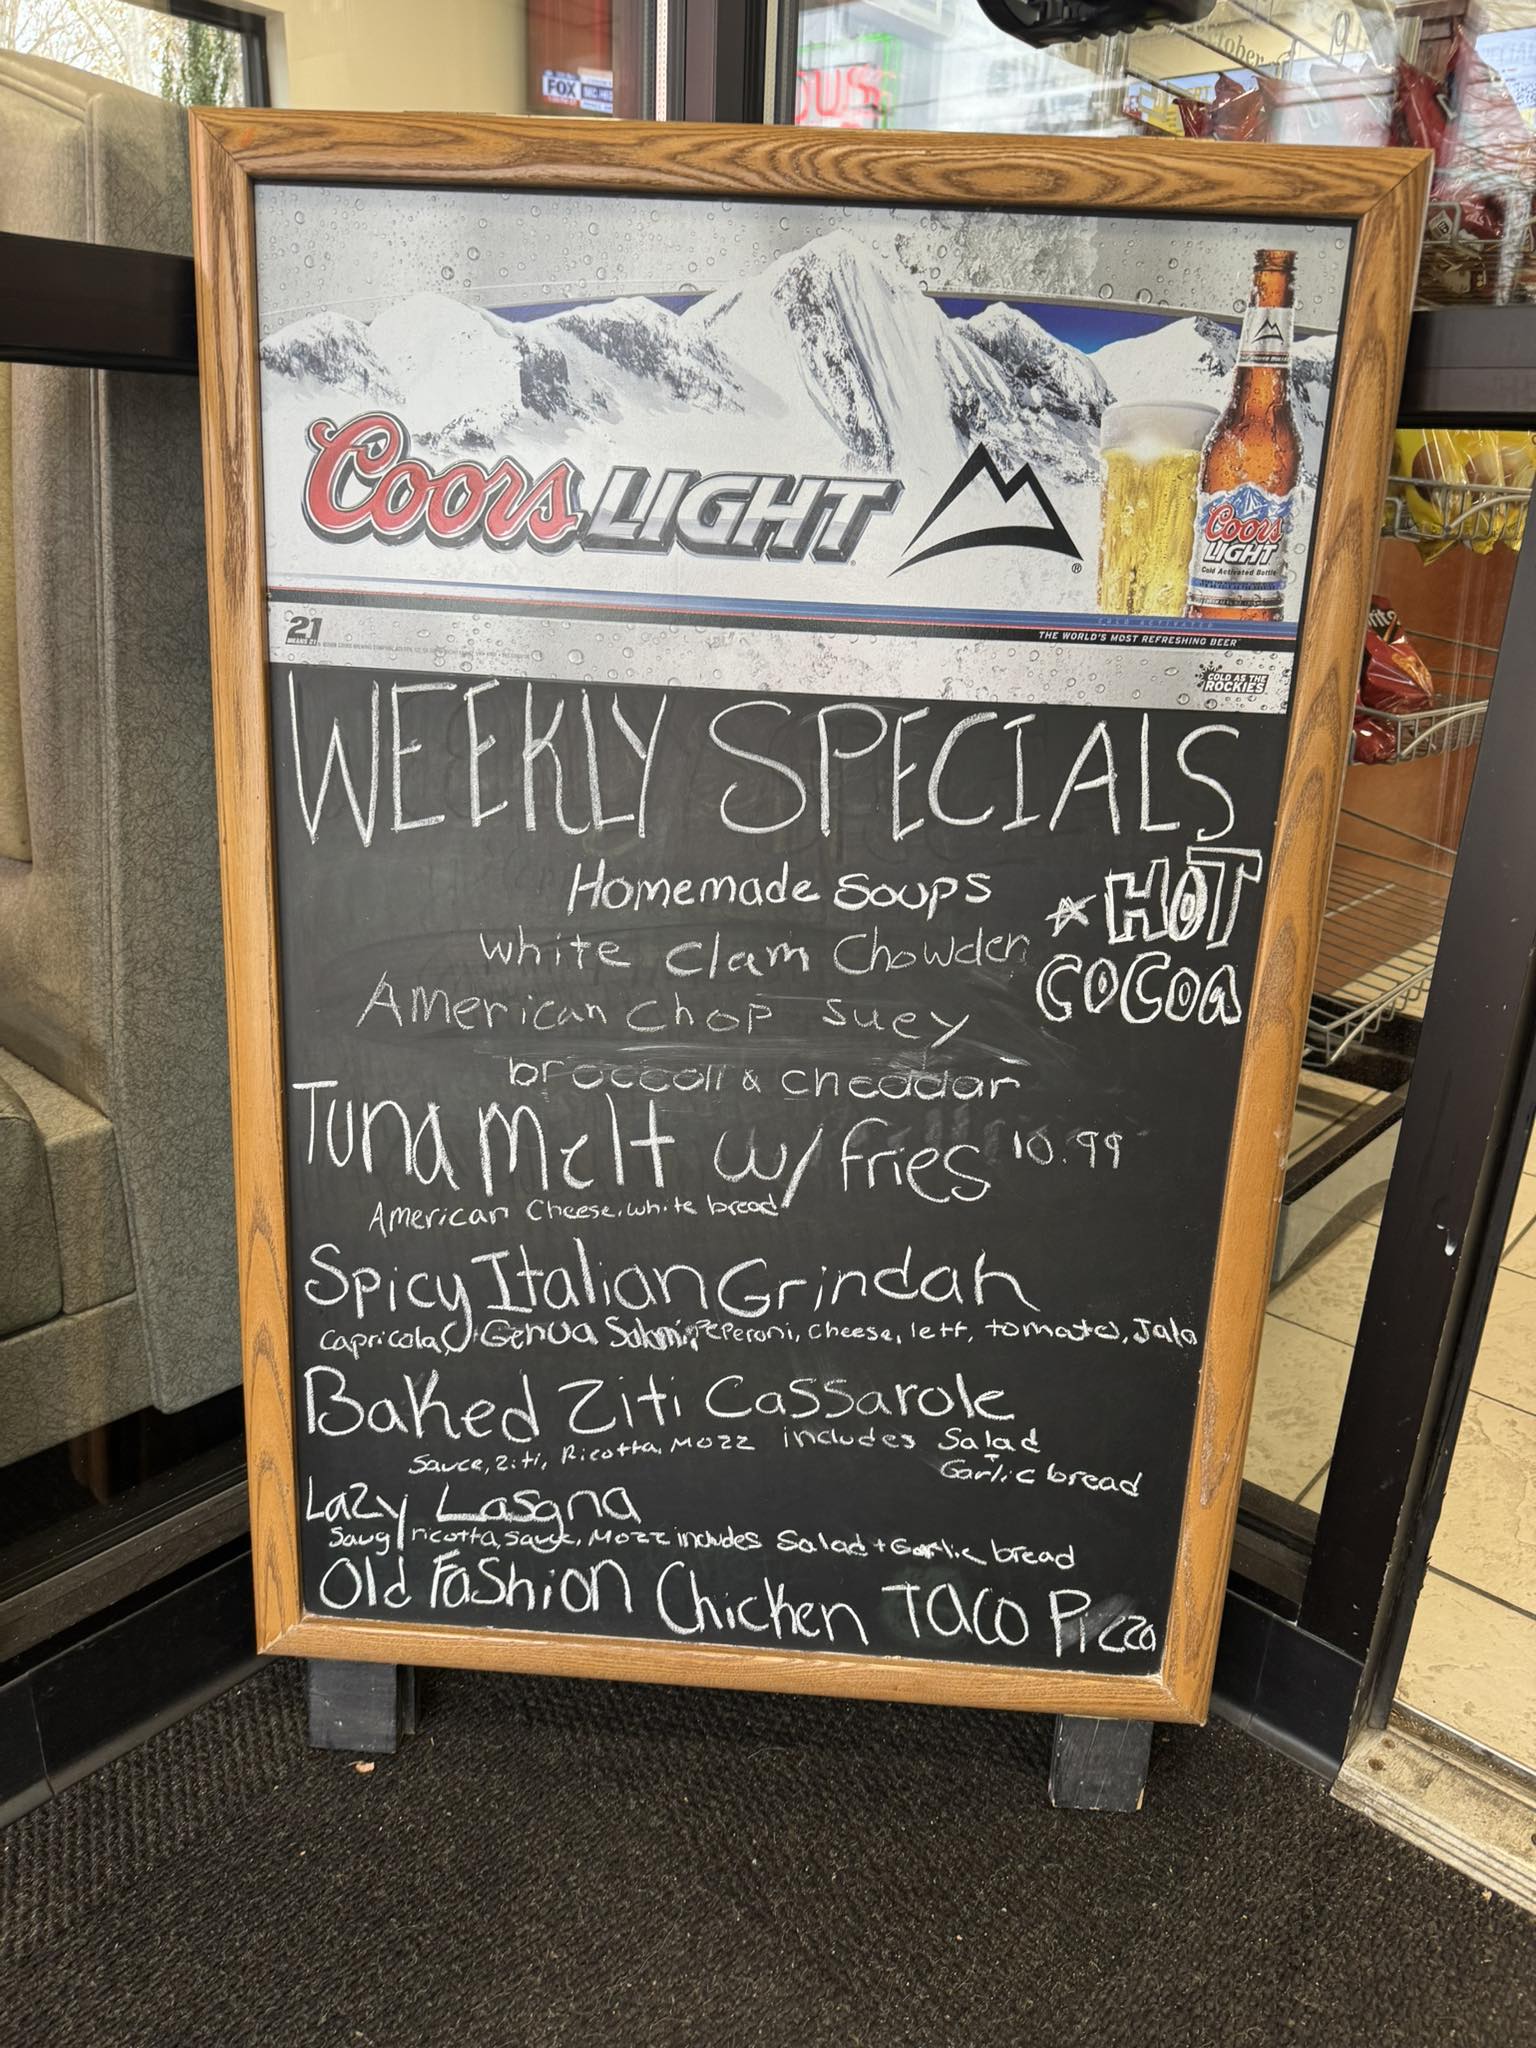 FOX
OUS
October
Coors LIGHT
®
Coors
LIGHT
Cold Activated Bottle
21
MEANS 21
COLD ACTIVATED
THE WORLD'S MOST REFRESHING BEER
COLD AS THE
ROCKIES
WEEKLY SPECIALS
Homemade Soups
* HOT
COCOA
White Clam Chowder
American Chop Suey
broccoli & cheddar
Tuna Melt w/ fries 10.99
American Cheese, white bread
Spicy Italian Grindah
Capricola, Genoa Salami, Peperoni, Cheese, lett, tomato, Jala
Baked Ziti Cassarole
Sauce, Ziti, Ricotta, Mozz includes Salad
+
Garlic bread
Lazy Lasagna
Saug, ricotta, sauce, Mozz includes Salad + Garlic bread
Old Fashion Chicken Taco Pizza